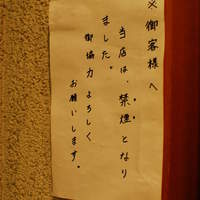 ※御客様へ
当店は、禁煙となり
ました。
御協力よろしく
お願いします。